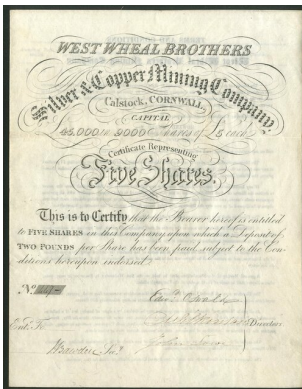 WEST WHEAL BROTHERS
Silver & Copper Mining Company,
Calstock, CORNWALL.
CAPITAL
£45,000 in 9000 Shares of £5 each
Certificate Representing
Five Shares.
This is to Certify that the Bearer hereof is entitled
to FIVE SHARES in this Company, upon which a Deposit of
TWO POUNDS per Share has been paid, subject to the Con-
ditions hereupon indorsed.
No.
Directors
Ent.